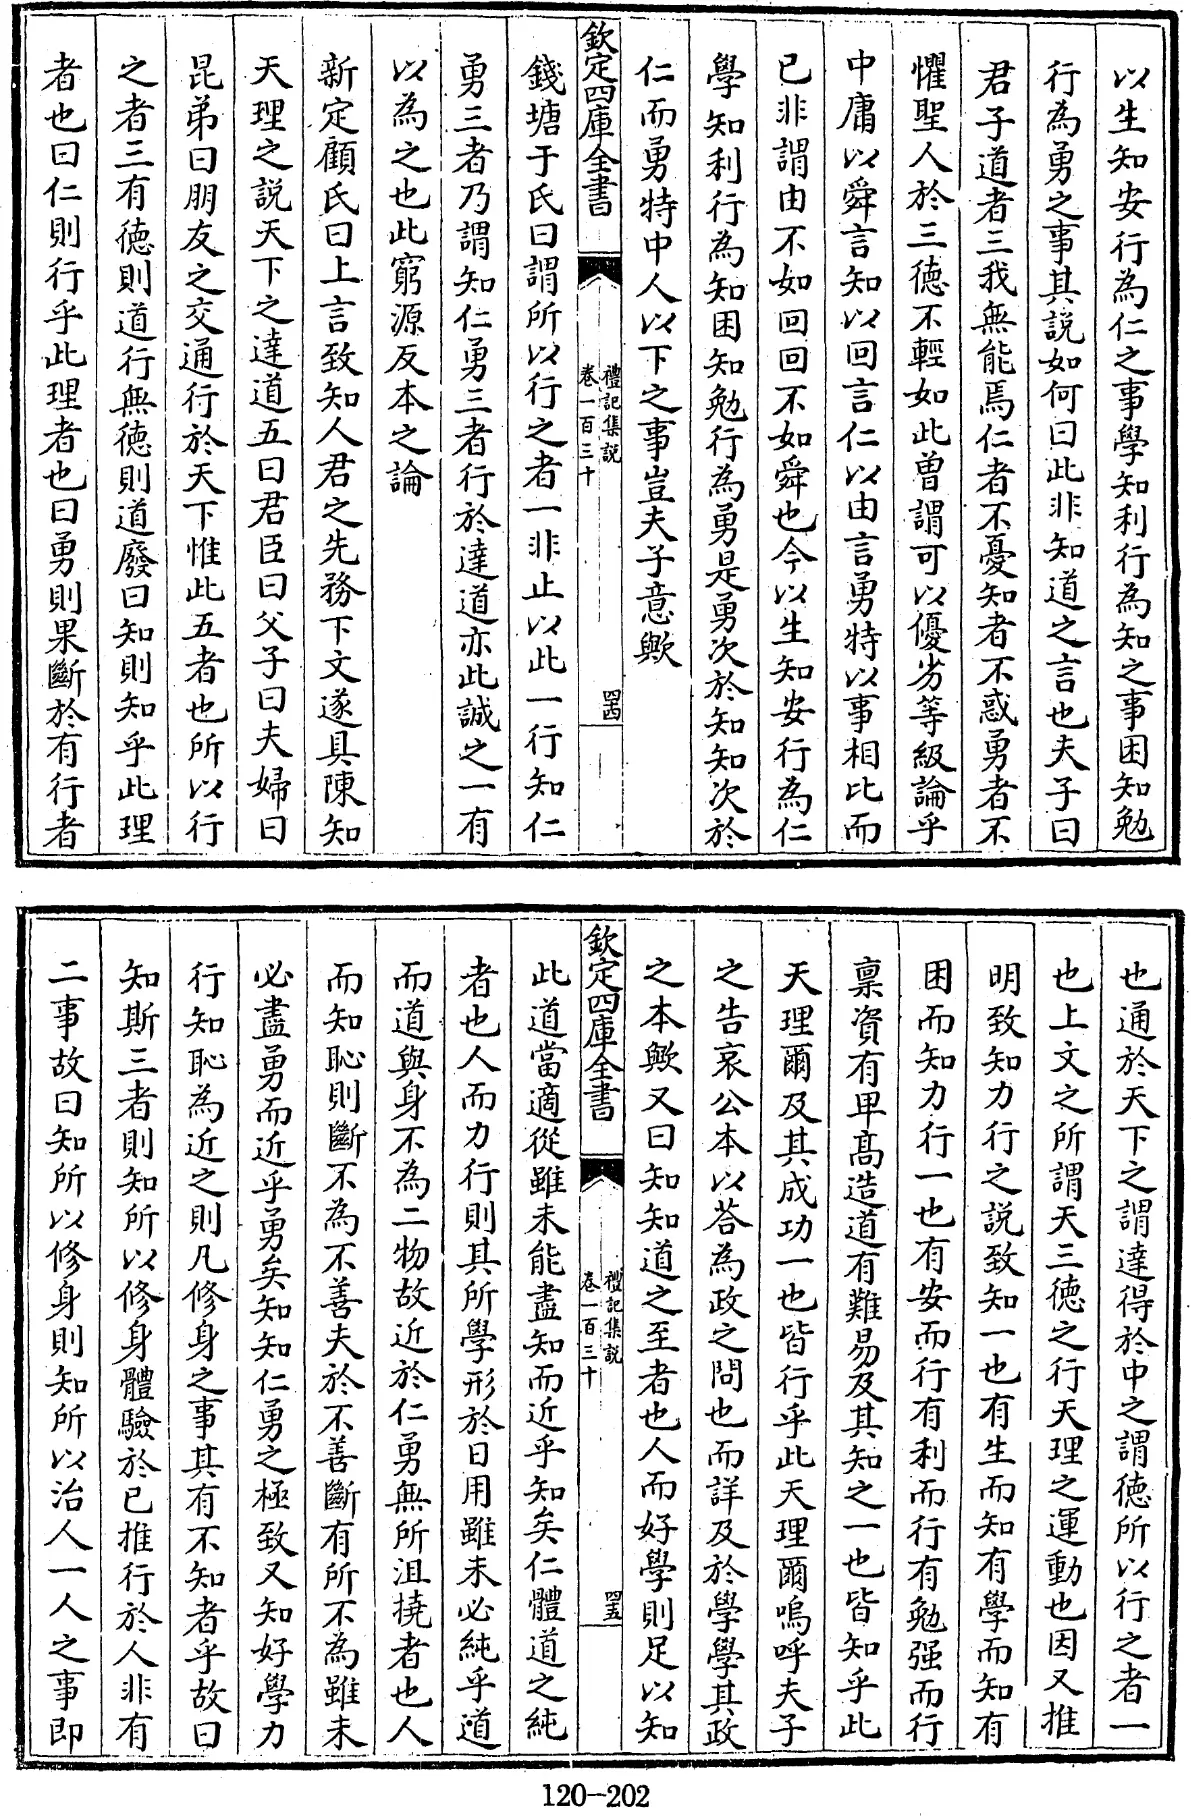 以生知安行為仁之事學知利行為知之事困知勉
行為勇之事其說如何曰此非知道之言也夫子曰
君子道者三我無能焉仁者不憂知者不惑勇者不
懼聖人於三德不輕如此曾謂可以優劣等級論乎
中庸以舜言知以回言仁以由言勇特以事相比而
已非謂由不如回回不如舜也今以生知安行為仁
學知利行為知困知勉行為勇是勇次於知知次於
仁而勇特中人以下之事豈夫子意歟
欽定四庫全書
禮記集說
卷一百三十
四四
錢塘于氏曰謂所以行之者一非止以此一行知仁
勇三者乃謂知仁勇三者行於達道亦此誠之一有
以為之也此窮源反本之論
新定顧氏曰上言致知人君之先務下文遂具陳知
天理之說天下之達道五曰君臣曰父子曰夫婦曰
昆弟曰朋友之交通行於天下惟此五者也所以行
之者三有德則道行無德則道廢曰知則知乎此理
者也曰仁則行乎此理者也曰勇則果斷於有行者
也通於天下之謂達得於中之謂德所以行之者一
也上文之所謂天三德之行天理之運動也因又推
明致知力行之說致知一也有生而知有學而知有
困而知力行一也有安而行有利而行有勉强而行
稟資有卑髙造道有難易及其知之一也皆知乎此
天理爾及其成功一也皆行乎此天理爾嗚呼夫子
之告哀公本以荅為政之問也而詳及於學學其政
之本歟又曰知知道之至者也人而好學則足以知
欽定四庫全書
禮記集說
卷一百三十
四五
此道當適從雖未能盡知而近乎知矣仁體道之純
者也人而力行則其所學形於日用雖未必純乎道
而道與身不為二物故近於仁勇無所沮撓者也人
而知恥則斷不為不善夫於不善斷有所不為雖未
必盡勇而近乎勇矣知知仁勇之極致又知好學力
行知恥為近之則凡修身之事其有不知者乎故曰
知斯三者則知所以修身體驗於已推行於人非有
二事故曰知所以修身則知所以治人一人之事即
120-202